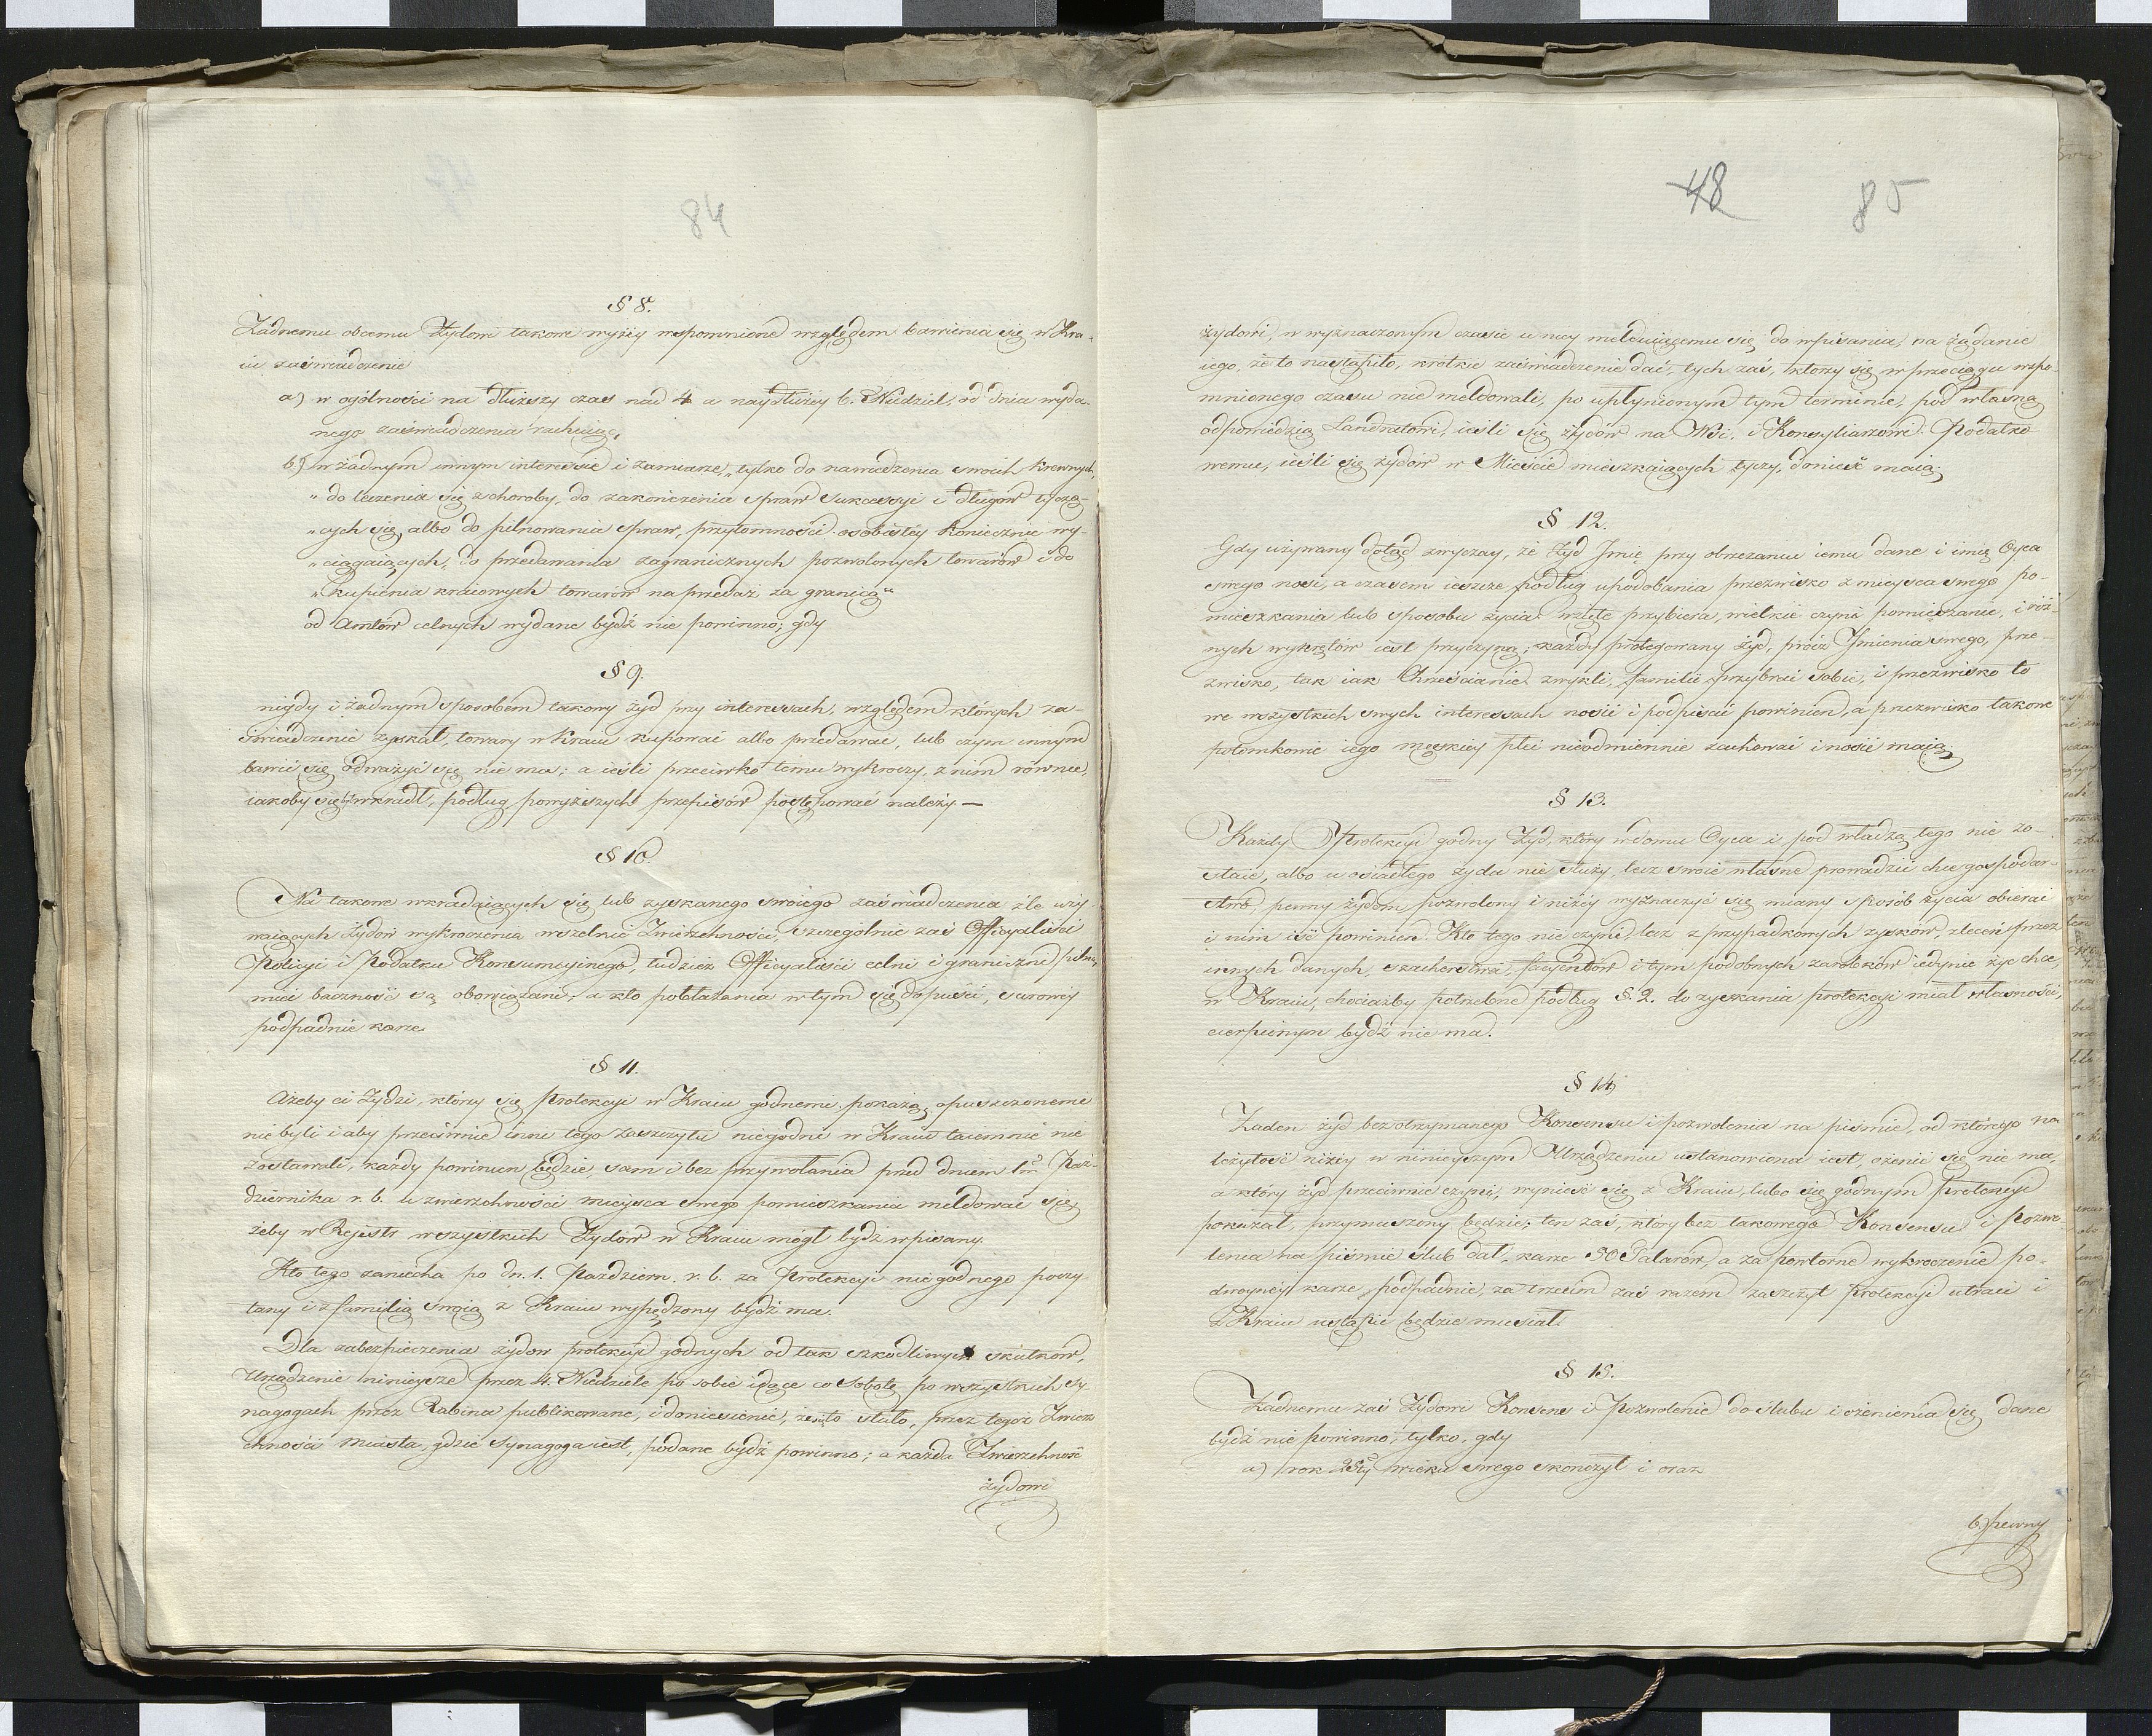 84
§ 8.
Żadnemu obcemu Żydowi takowe wyżey wspomnione względem bawienia się w Kra-
iu zaświadczenie
a) w ogólności na dłuższy czas nad 4 a naydłużey 6. Niedziel, od dnia wyda-
nego zaświadczenia rachuiąc,
b.) w żadnym innym interessie i zamiarze, „tylko do nawiedzenia swoich krewnych,
„do leczenia się z choroby, do zakończenia spraw sukcessyi i długów tyczą-
„cych się, albo do pilnowania spraw, przytomności osobistey koniecznie wy-
„ciągaiących, do przedawania zagranicznych pozwolonych towarów i do
„kupienia kraiowych towarów na przedaż za granicą“
od Amtów celnych wydane bydź nie powinno; gdy
§ 9.
nigdy i żadnym sposobem takowy żyd przy interessach, względem których za-
świadczenie zyskał, towary w Kraiu kupować albo przedawać, lub czym innym
bawić się odważyć się nie ma; a ieśli przeciwko temu wykroczy, z nim równie,
iakoby się wkradł, podług powyższych przepisów postępować należy —
§ 10.
Na takowe wkradaiących się lub zyskanego swoiego zaświadczenia źle uży-
waiących Żydów wykroczenia wszelkie Zwierzchności, szczególnie zaś Officyaliści
Policyi i Podatku Konsumcyinego, tudzież Officyaliści celni i graniczni pilną
mieć baczność są obowiązani; a kto pobłażania w tym się dopuści, surowey
podpadnie karze
§ 11.
Ażeby ci Żydzi, którzy się protekcyi w Kraiu godnemi pokażą, opuszczonemi
nie byli i aby przeciwnie inni tego zaszczytu niegodni w Kraiu taiemnie nie
zostawali, każdy powinien będzie, sam i bez przywołania przed dniem 1m Paź-
dziernika r. b. u zwierzchności mieysca swego pomieszkania meldować się,
żeby w Rejestr wszystkich Żydów w Kraiu mógł bydź wpisany.
Kto tego zaniecha po dn. 1. Październ. r. b. za Protekcyi niegodnego poczy-
tany i z familią swoią z Kraiu wypędzony bydź ma.
Dla zabezpieczenia żydów protekcyi godnych od tak szkodliwych skutków,
Urządzenie ninieysze przez 4. Niedziele po sobie idące co Sobotę po wszystkich Sy-
nagogach przez Rabina publikowane, i doniesienie, że się to stało, przez tegoż Zwierz-
chności miasta, gdzie Synagoga iest, podane bydź powinno; a każda Zwierzchność
żydowi
48 85
żydowi, w wyznaczonym czasie u niey melduiącemu się do wpisania, na żądanie
iego, że to nastąpiło, krótkie zaświadczenie dać, tych zaś, którzy się w przeciągu wspo-
mnionego czasu nie meldowali, po upłynionym tym terminie, pod własną
odpowiedzią Landratowi, ieśli się żydów na Wsi, i Konsyliarzowi Podatko-
wemu, ieśli się żydów w Mieście mieszkaiących tyczy, donieść maią.
§ 12.
Gdy używany dotąd zwyczay, że żyd Imię przy obrzezaniu iemu dane i imię Oyca
swego nosi, a czasem ieszcze podług upodobania przezwisko z mieysca swego po-
mieszkania lub sposobu życia wzięte przybiera, wielkie czyni pomieszanie, i róż-
nych wykrętów iest przyczyną; każdy protegowany żyd, prócz Imienia swego, prze-
zwisko, tak iak Chrześcianie zwykli, familii przybrać sobie, i przezwisko to
we wszystkich swych interessach nosić i podpisać powinien, a przezwisko takowe
potomkowie iego męskiey płci nieodmiennie zachować i nosić maią
§ 13.
Każdy Protekcyi godny Żyd, który w domu Oyca i pod władzą tego nie zo-
staie, albo u osiadłego żyda nie służy, lecz swoie własne prowadzić chce gospodar-
stwo, pewny żydom pozwolony i niżey wyznaczyć się miany sposób życia obierać
i nim iść powinien. Kto tego nie czyni, lecz z przypadkowych zysków, zleceń przez
innych danych, szacherstwa, facyendów i tym podobnych zarobków iedynie żyć chce,
w Kraiu, chociażby potrzebne podług §. 2. do zyskania protekcyi miał własności,
cierpienym bydź nie ma.
§ 14
Żaden żyd bez otrzymanego Konsensu i pozwolenia na piśmie, od którego na-
leżytość niżey w ninieyszym Urządzeniu ustanowiona iest, ożenić się nie ma,
a który żyd przeciwnie czyni, wynieść się z Kraiu, lubo się godnym protekcyi
pokazał, przymuszony będzie; ten zaś, który bez takowego Konsensu i Pozwo-
lenia na piśmie ślub dał, karze 50 Talarów, a za powtórne wykroczenie po-
dwóyney karze podpadnie, za trzecim zaś razem zaszczyt protekcyi utraci i
z Kraiu ustąpić będzie musiał.
§ 15.
Żadnemu zaś Żydowi Konsens i Pozwolenie do ślubu i ożenienia się dane
bydź nie powinno, tylko, gdy
a) rok 25ty wieku swego skończył i oraz
b.) pewny